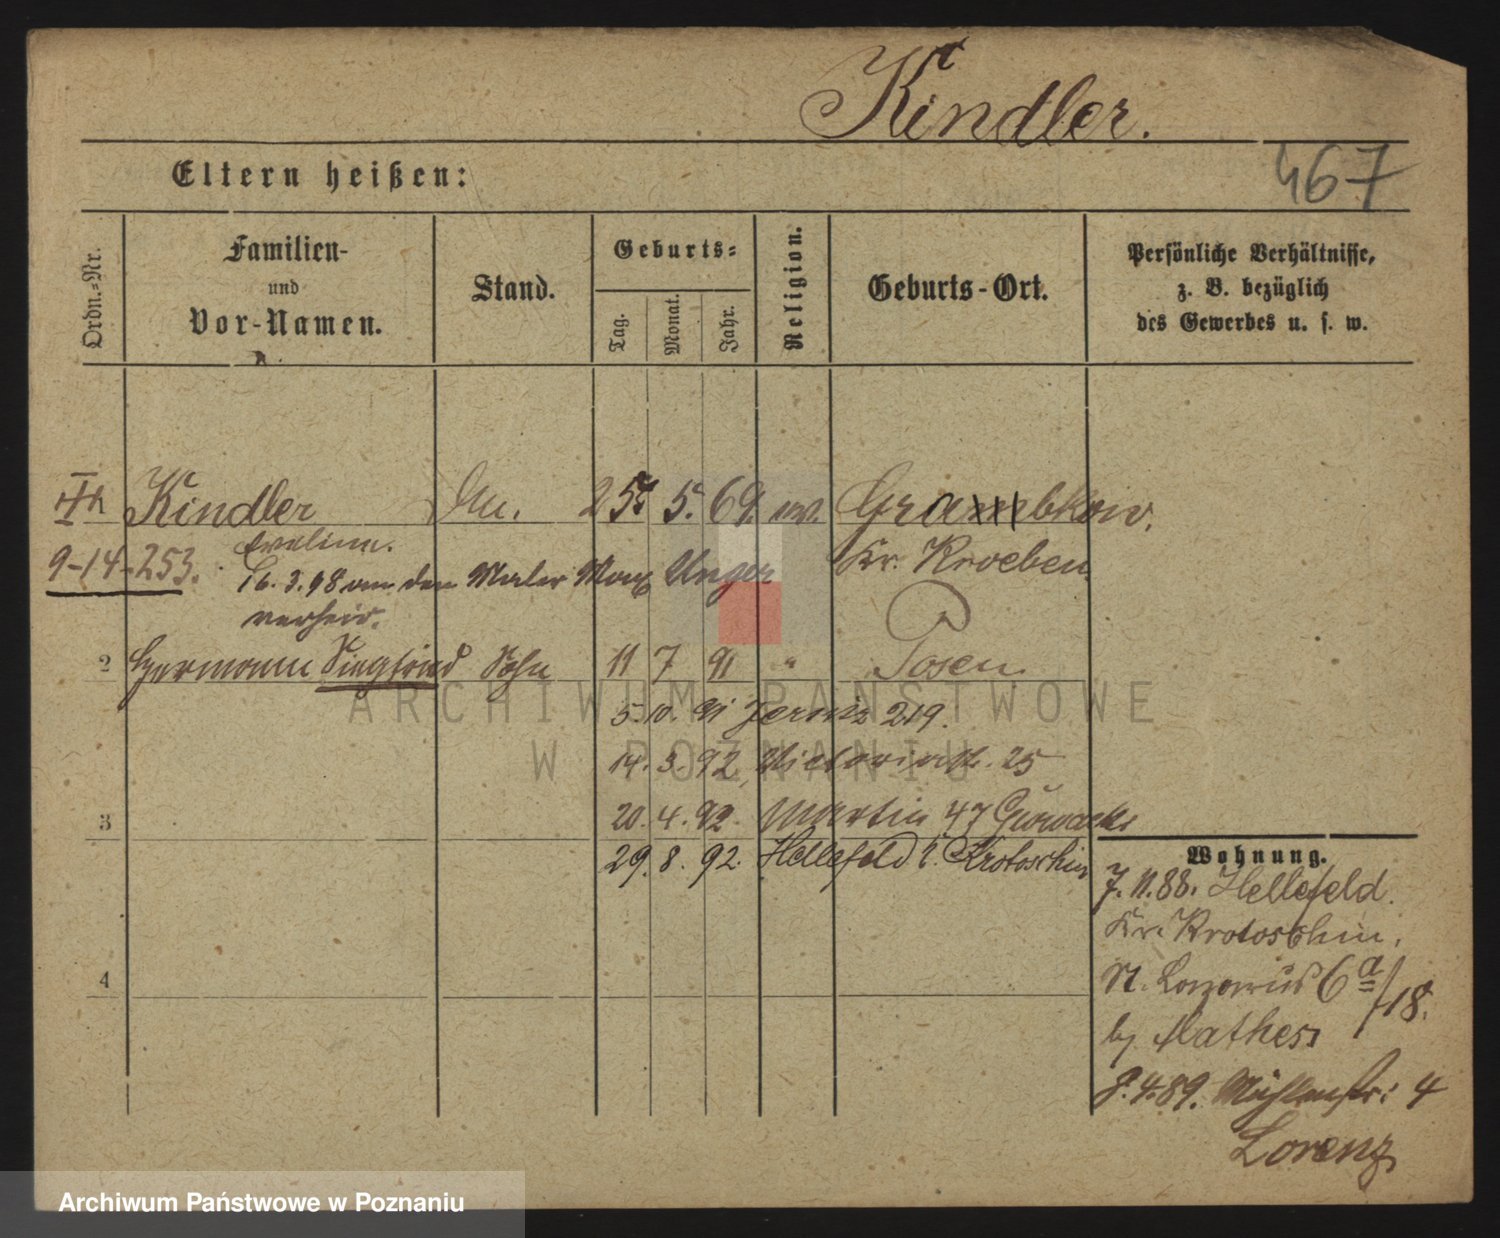 Kindler.
467
Eltern heißen:
Ordn.-Nr.
Familien-
und
Vor-Namen.
Stand.
Geburts-
Tag.
Monat.
Jahr.
Religion.
Geburts-Ort.
Persönliche Verhältnisse,
z. B. bezüglich
des Gewerbes u. s. w.
Kindler 25. 5. 69. ev.
9-14-253. Eveline. Kr. Kroeben
16. 3. 98 an den Maler Max Unger
verheir.
2 Hermann Siegfried Sohn 11 7 91 " Posen
5. 10. 91 Jersitz 219.
14. 3. 92 Victoriastr. 25
3 20. 4. 92. Martin 47
29. 8. 92. Hellefeld b. Krotoschin
Wohnung.
7. 11. 88. Hellefeld.
Kr. Krotoschin,
4 St. Lazarus 6a/18.
by Mathes
8. 4. 89. Mühlenstr: 4
Lorenz
ARCHIWUM PAŃSTWOWE
W POZNANIU
Archiwum Państwowe w Poznaniu